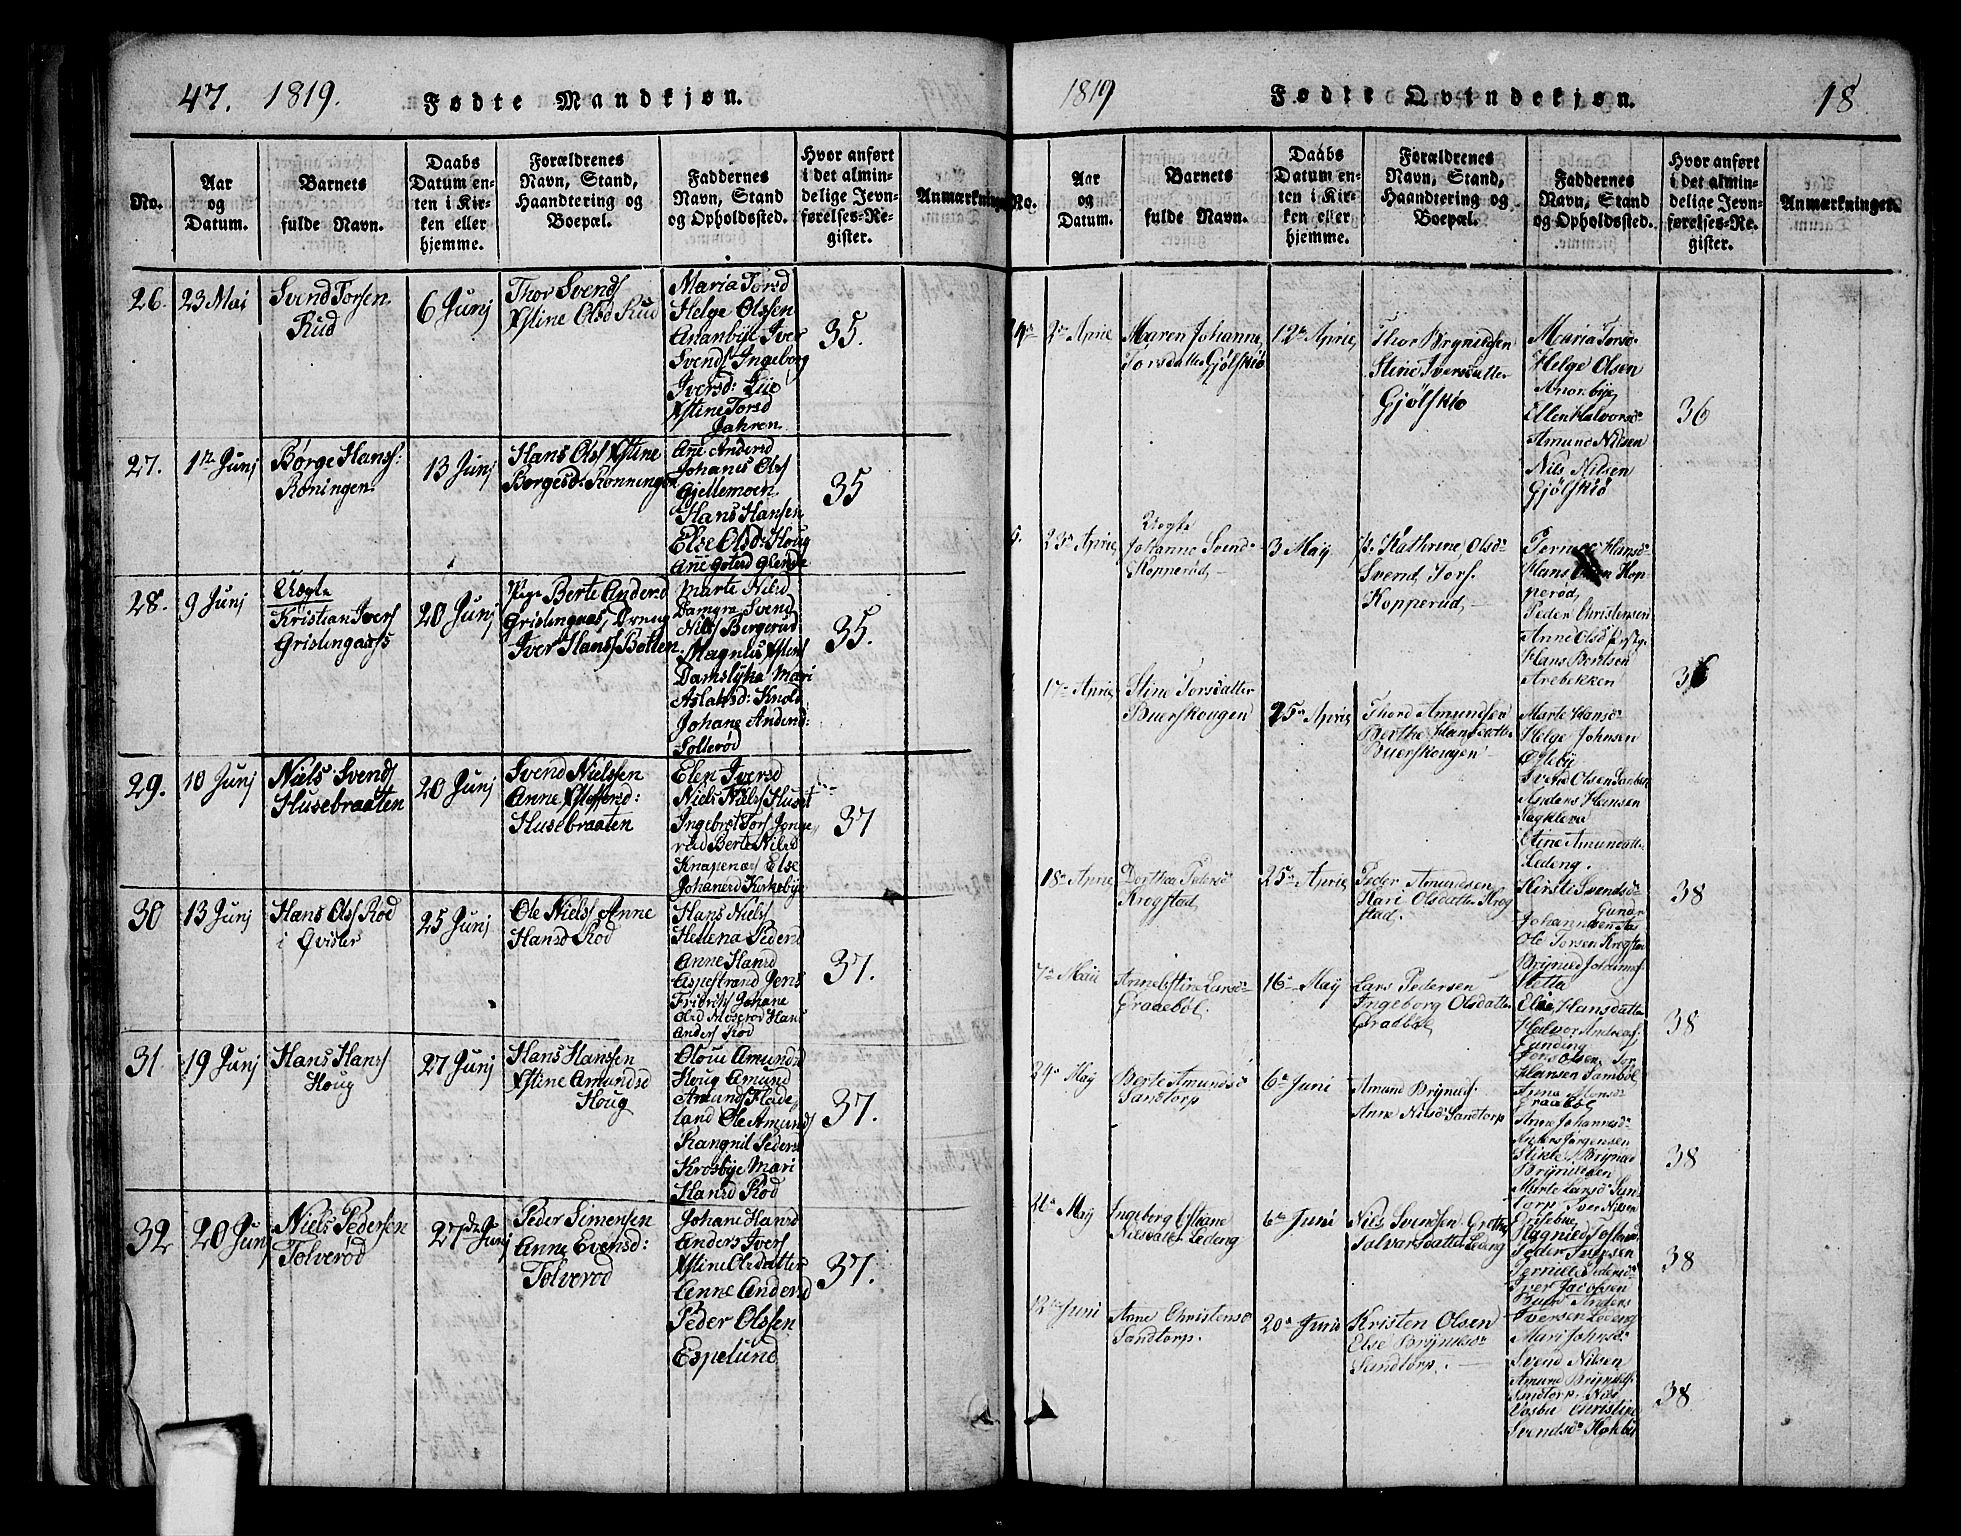 47. 1819. Fødte Mandkjøn.
No.
Aar
og
Datum.
Barnets
fulde Navn.
Daabs
Datum en-
ten i Kir-
ken eller
hjemme.
Forældrenes
Navn, Stand,
Haandtering og
Boepæl.
Faddernes
Navn, Stand
og Opholdssted.
Hvor anført
i det almin-
delige Jevn-
førelses-Re-
gister.
Anmærkninger
26.
23 Mai
Svend Torsen
Rud
6 Junj
Thor Svends
Xstine Olsd Rud
Maria Torsd
Helge Olssen
Ananbije Iver
Svends Ingeborg
Iversd: Lie
Xstine Torsd
Jahren
35.
27.
1te Junj
Børge Hans:
Roningen
13 Junj
Hans Ols Xstine
Borgesd: Rønningen
Ane Andersd
Johanis Ols
Gjellemoen
Hans Hansen
Else Olsd: Houg
Ane
35
28.
9 Junj
Uægte
Kristian Ivers
Gristingaass
20 Junj
Pige Berte Andersd
Gristingaas, Dreng
Iver Hans Botten.
Marte Nilsd
Damyra Svend
Nils Bergerud
Magnus Xstens
Damslyka Mari
Aslaksd: Knold
Johane Andersd:
Solterød
35.
29.
10 Junj
Niels Svends
Husebraaten
20 Junj
Svend Nielssen
Anne Xstoffersd:
Husebraaten
Elen Iversd
Niels Niels Huset
Ingebret Tors Jonge
rud Berte Nilsd
Knapenæs Else
Johanesd Kirkebije
37
30
13 Junj
Hans Ols Rod
i Qvister
25 Junj
Ole Niels Anne
Hansd Rod
Hans Niels
Hellena Pedersd
Anne Hansd
Aspestrand Jens
Fridriks Johane
Olsd Moserod Hans
Anders Rod
37.
31.
19 Junj
Hans Hans
Houg
27 Junj
Hans Hanssen
Xstine Amundsd
Houg
Oloue Amundsd
Houg Amund
Amunds Hade
land Ole Amunds
Rangnil Pedersd
Krosbije Mari
Hansd Rod
37.
32
20 Junj
Niels Pedersen
Tolverød
27de Junj
Peder Simensen
Anne Evensd:
Tolverod
Johane Hansd
Anders Ivers
Xstine Olsdatter
Anne Andersd
Peder Olssen
Espelund
37.
1819 Fødte Qvindekjøn. 18
No.
Aar
og
Datum.
Barnets
fulde Navn.
Daabs
Datum en-
ten i Kir-
ken eller
hjemme.
Forældrenes
Navn, Stand,
Haandtering og
Boepæl.
Faddernes
Navn, Stand
og Opholdssted.
Hvor anført
i det almin-
delige Jevn-
førelses-Re-
gister.
Anmærkninger.
2de April
Maren Johanne
Torsdatter Gjølskiø
12te April
Thor Brynildsen
Stine Iversdatter
Gjølskiø
Maria Torsd:
Helge Olsen
Anonbije,
Ellen Halvorsd:
Amund Nilsen
Nils Nilsen
Gjølskiø
36
5.
23de April
Uægte
Johanne Svend-
Kopperød,
3 May
P. Kathrine Olsd:
Svend Tors.
Kopperud,
Pernille Hansd:
Hans Kop-
perød,
Peder Christensen
Anne Olsd
Hans Berntsen
Arebekken
36
17de April
Stine Torsdatter
Buerskougen
25de April
Thord Amundsen
Berthe Hansdatter
Buerskougen
Marte Hansd:
Helge Johnsen
Østebij
Svend Olsen
Anders Hansen
Hagkleva
Stine Amundatter
Ledeng.
18de April
Dorthea Pedersd:
Krogstad,
25de April
Peder Amundsen
Kari Olsdatter Krog
stad.
Kirsti Svendsd:
Gunder
Johannesen
Ole Torsen Krogstad
Brijnild Johannes
Stetta
38
7de Maii
Anne Xstine Larsd:
Graaebøl.
16de May
Lars Pedersen
Ingeborg Olsdatter
Graabøl
Elie Hansdatter
Halvor Andreas
Lunding
Jens Olsen Tor
Hansen Sambøl
Anne Hansd:
Graabøl
38
24de May
Berte Amundsd:
Sandtorp
6te Juni
Amund Brijnild:
Anne Nilsd: Sandtorp
Anne Johannesd:
Anders Jørgensen
Brijnildsen
Marte Larsd:
torp Iver Nilsen
38
May
Ingeborg Xstiane
Nilsdatter Ledeng
6te Juni
Nils Svendsen Grethe
Halvarsdatter Ledeng
Ragnild
Peder Iversen
Pernille Pedersd:
Iver Jacobsen
Buer Anders
Iversen Ledeng
38
12te Juni
Anne Christensd:
Sandtorp.
20de Junii
Kristen Olsen
Else Brijnilds:
Sandtorp.
Mari Johnsd:
Svend Nilsen
Amund Brijnild:
Sandtorp. Nils
Vosbu Christine
Svendsd: Hokbij
38